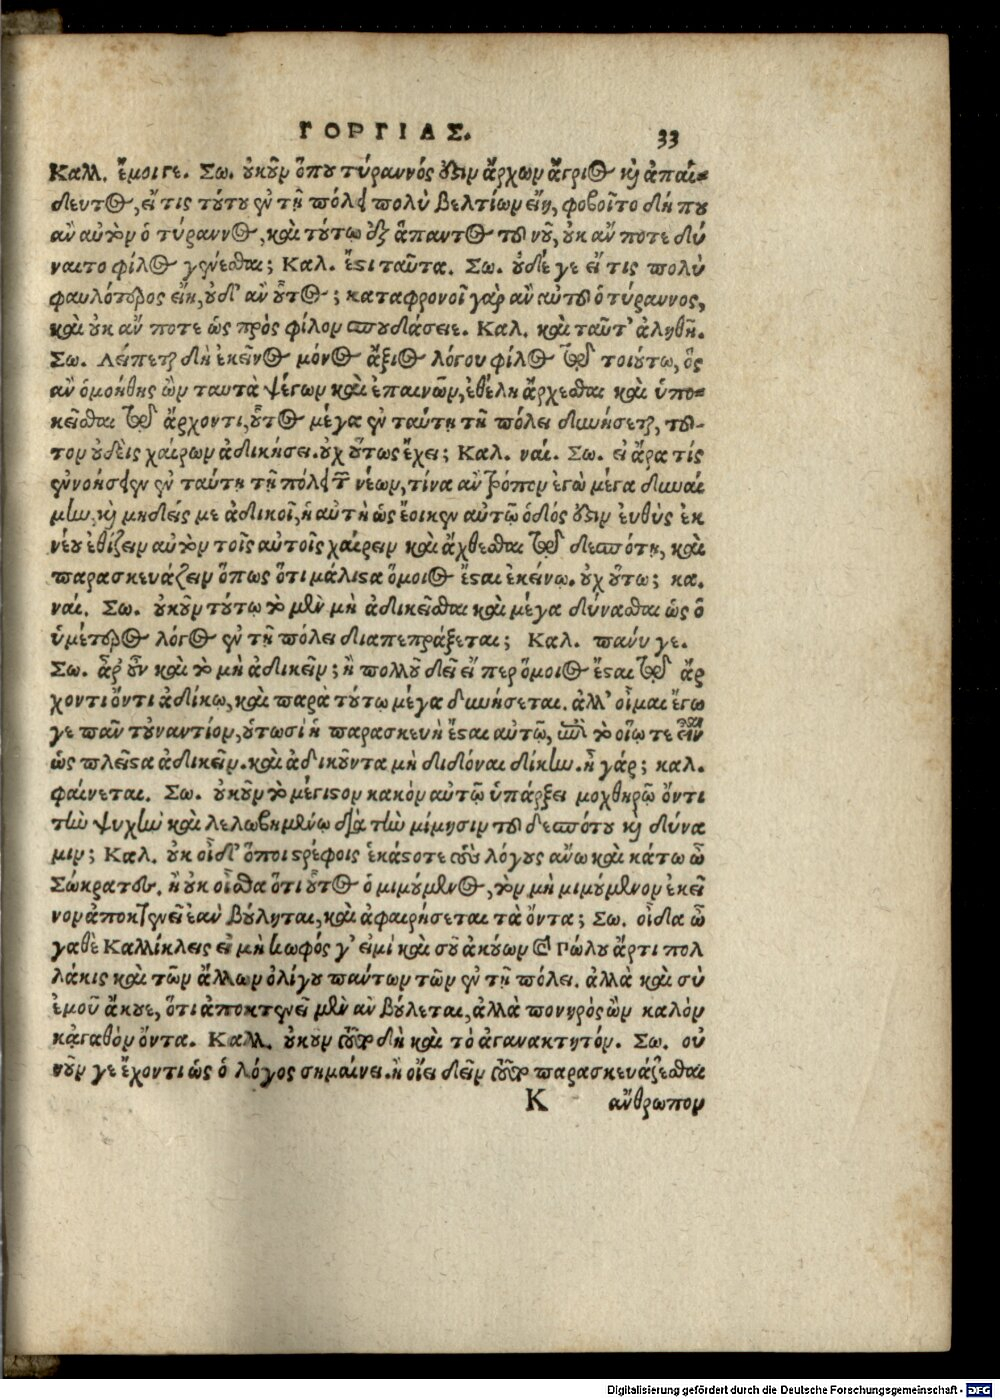 ΓΟΡΓΙΑΣ. 33
Καλλ. ἔμοιγε. Σω. οὐκοῦν ὅπου τύραννός ἐστιν ἄρχων ἄγριος καὶ ἀπαί-
δευτος, εἴ τις τούτου ἐν τῇ πόλει πολὺ βελτίων εἴη, φοβοῖτο δή που
ἂν αὐτὸν ὁ τύραννος, καὶ τούτῳ ἐξ ἅπαντος τοῦ νοῦ, οὐκ ἄν ποτε δύ
ναιτο φίλος γενέσθαι; Καλ. ἔστι ταῦτα. Σω. οὐδέ γε εἴ τις πολὺ
φαυλότερος εἴη, οὐδ' ἂν οὗτος; καταφρονοῖ γὰρ ἂν αὐτοῦ ὁ τύραννος,
καὶ οὐκ ἄν ποτε ὡς πρὸς φίλον σπουδάσειε. Καλ. καὶ ταῦτ' ἀληθῆ.
Σω. Λείπεται δὴ ἐκεῖνος μόνος ἄξιος λόγου φίλος τῷ τοιούτῳ, ὃς
ἂν ὁμοήθης ὢν ταυτὰ ψέγων καὶ ἐπαινῶν, ἐθέλῃ ἄρχεσθαι καὶ ὑπο-
κεῖσθαι τῷ ἄρχοντι, οὗτος μέγα ἐν ταύτῃ τῇ πόλει δυνήσεται, τοῦ-
τον οὐδεὶς χαίρων ἀδικήσει. οὐχ οὕτως ἔχει; Καλ. ναί. Σω. εἰ ἄρα τίς
ἐννοήσειεν ἐν ταύτῃ τῇ πόλει τῶν νέων, τίνα ἂν τρόπον ἐγὼ μέγα δυναί
μην, καὶ μηδείς με ἀδικοῖ, ἡ αὐτὴ ὡς ἔοικεν αὐτῷ ὁδός ἐστιν εὐθὺς ἐκ
νέου ἐθίζειν αὑτὸν τοῖς αὐτοῖς χαίρειν καὶ ἄχθεσθαι τῷ δεσπότῃ, καὶ
παρασκευάζειν ὅπως ὅτι μάλιστα ὅμοιος ἔσται ἐκείνῳ. οὐχ οὕτω; κα.
ναί. Σω. οὐκοῦν τούτῳ τὸ μὲν μὴ ἀδικεῖσθαι καὶ μέγα δύνασθαι ὡς ὁ
ὑμέτερος λόγος ἐν τῇ πόλει διαπεπράξεται; Καλ. πάνυ γε.
Σω. ἆρ' οὖν καὶ τὸ μὴ ἀδικεῖν; ἢ πολλοῦ δεῖ εἴπερ ὅμοιος ἔσται τῷ ἄρ
χοντι ὄντι ἀδίκῳ, καὶ παρὰ τούτῳ μέγα δυνήσεται. ἀλλ' οἶμαι ἔγω
γε πᾶν τοὐναντίον, οὑτωσὶ ἡ παρασκευὴ ἔσται αὐτῷ, ἐπὶ τὸ οἵῳ τε εἶναι
ὡς πλεῖστα ἀδικεῖν. καὶ ἀδικοῦντα μὴ διδόναι δίκην. ἦ γάρ; καλ.
φαίνεται. Σω. οὐκοῦν τὸ μέγιστον κακὸν αὐτῷ ὑπάρξει μοχθηρῷ ὄντι
τὴν ψυχὴν καὶ λελωβημένῳ διὰ τὴν μίμησιν τοῦ δεσπότου καὶ δύνα
μιν; Καλ. οὐκ οἶδ' ὅποι στρέφοις ἑκάστοτε τοὺς λόγους ἄνω καὶ κάτω ὦ
Σώκρατες. ἢ οὐκ οἶσθα ὅτι οὗτος ὁ μιμούμενος, τὸν μὴ μιμούμενον ἐκεῖ
νον ἀποκτενεῖ ἐὰν βούληται, καὶ ἀφαιρήσεται τὰ ὄντα; Σω. οἶδα ὦ
γαθὲ Καλλίκλεις εἰ μὴ κωφός γ' εἰμὶ καὶ σοῦ ἀκούων καὶ Πώλου ἄρτι πολ
λάκις καὶ τῶν ἄλλων ὀλίγου πάντων τῶν ἐν τῇ πόλει. ἀλλὰ καὶ σὺ
ἐμοῦ ἄκουε, ὅτι ἀποκτενεῖ μὲν ἂν βούλεται, ἀλλὰ πονηρὸς ὢν καλὸν
κἀγαθὸν ὄντα. Καλλ. οὐκοῦν τοῦτο δὴ καὶ τὸ ἀγανακτητόν. Σω. οὐ
νοῦν γε ἔχοντι ὡς ὁ λόγος σημαίνει. ἢ οἴει δεῖν τοῦτο παρασκευάζεσθαι
K ἄνθρωπον
Digitalisierung gefördert durch die Deutsche Forschungsgemeinschaft - DFG